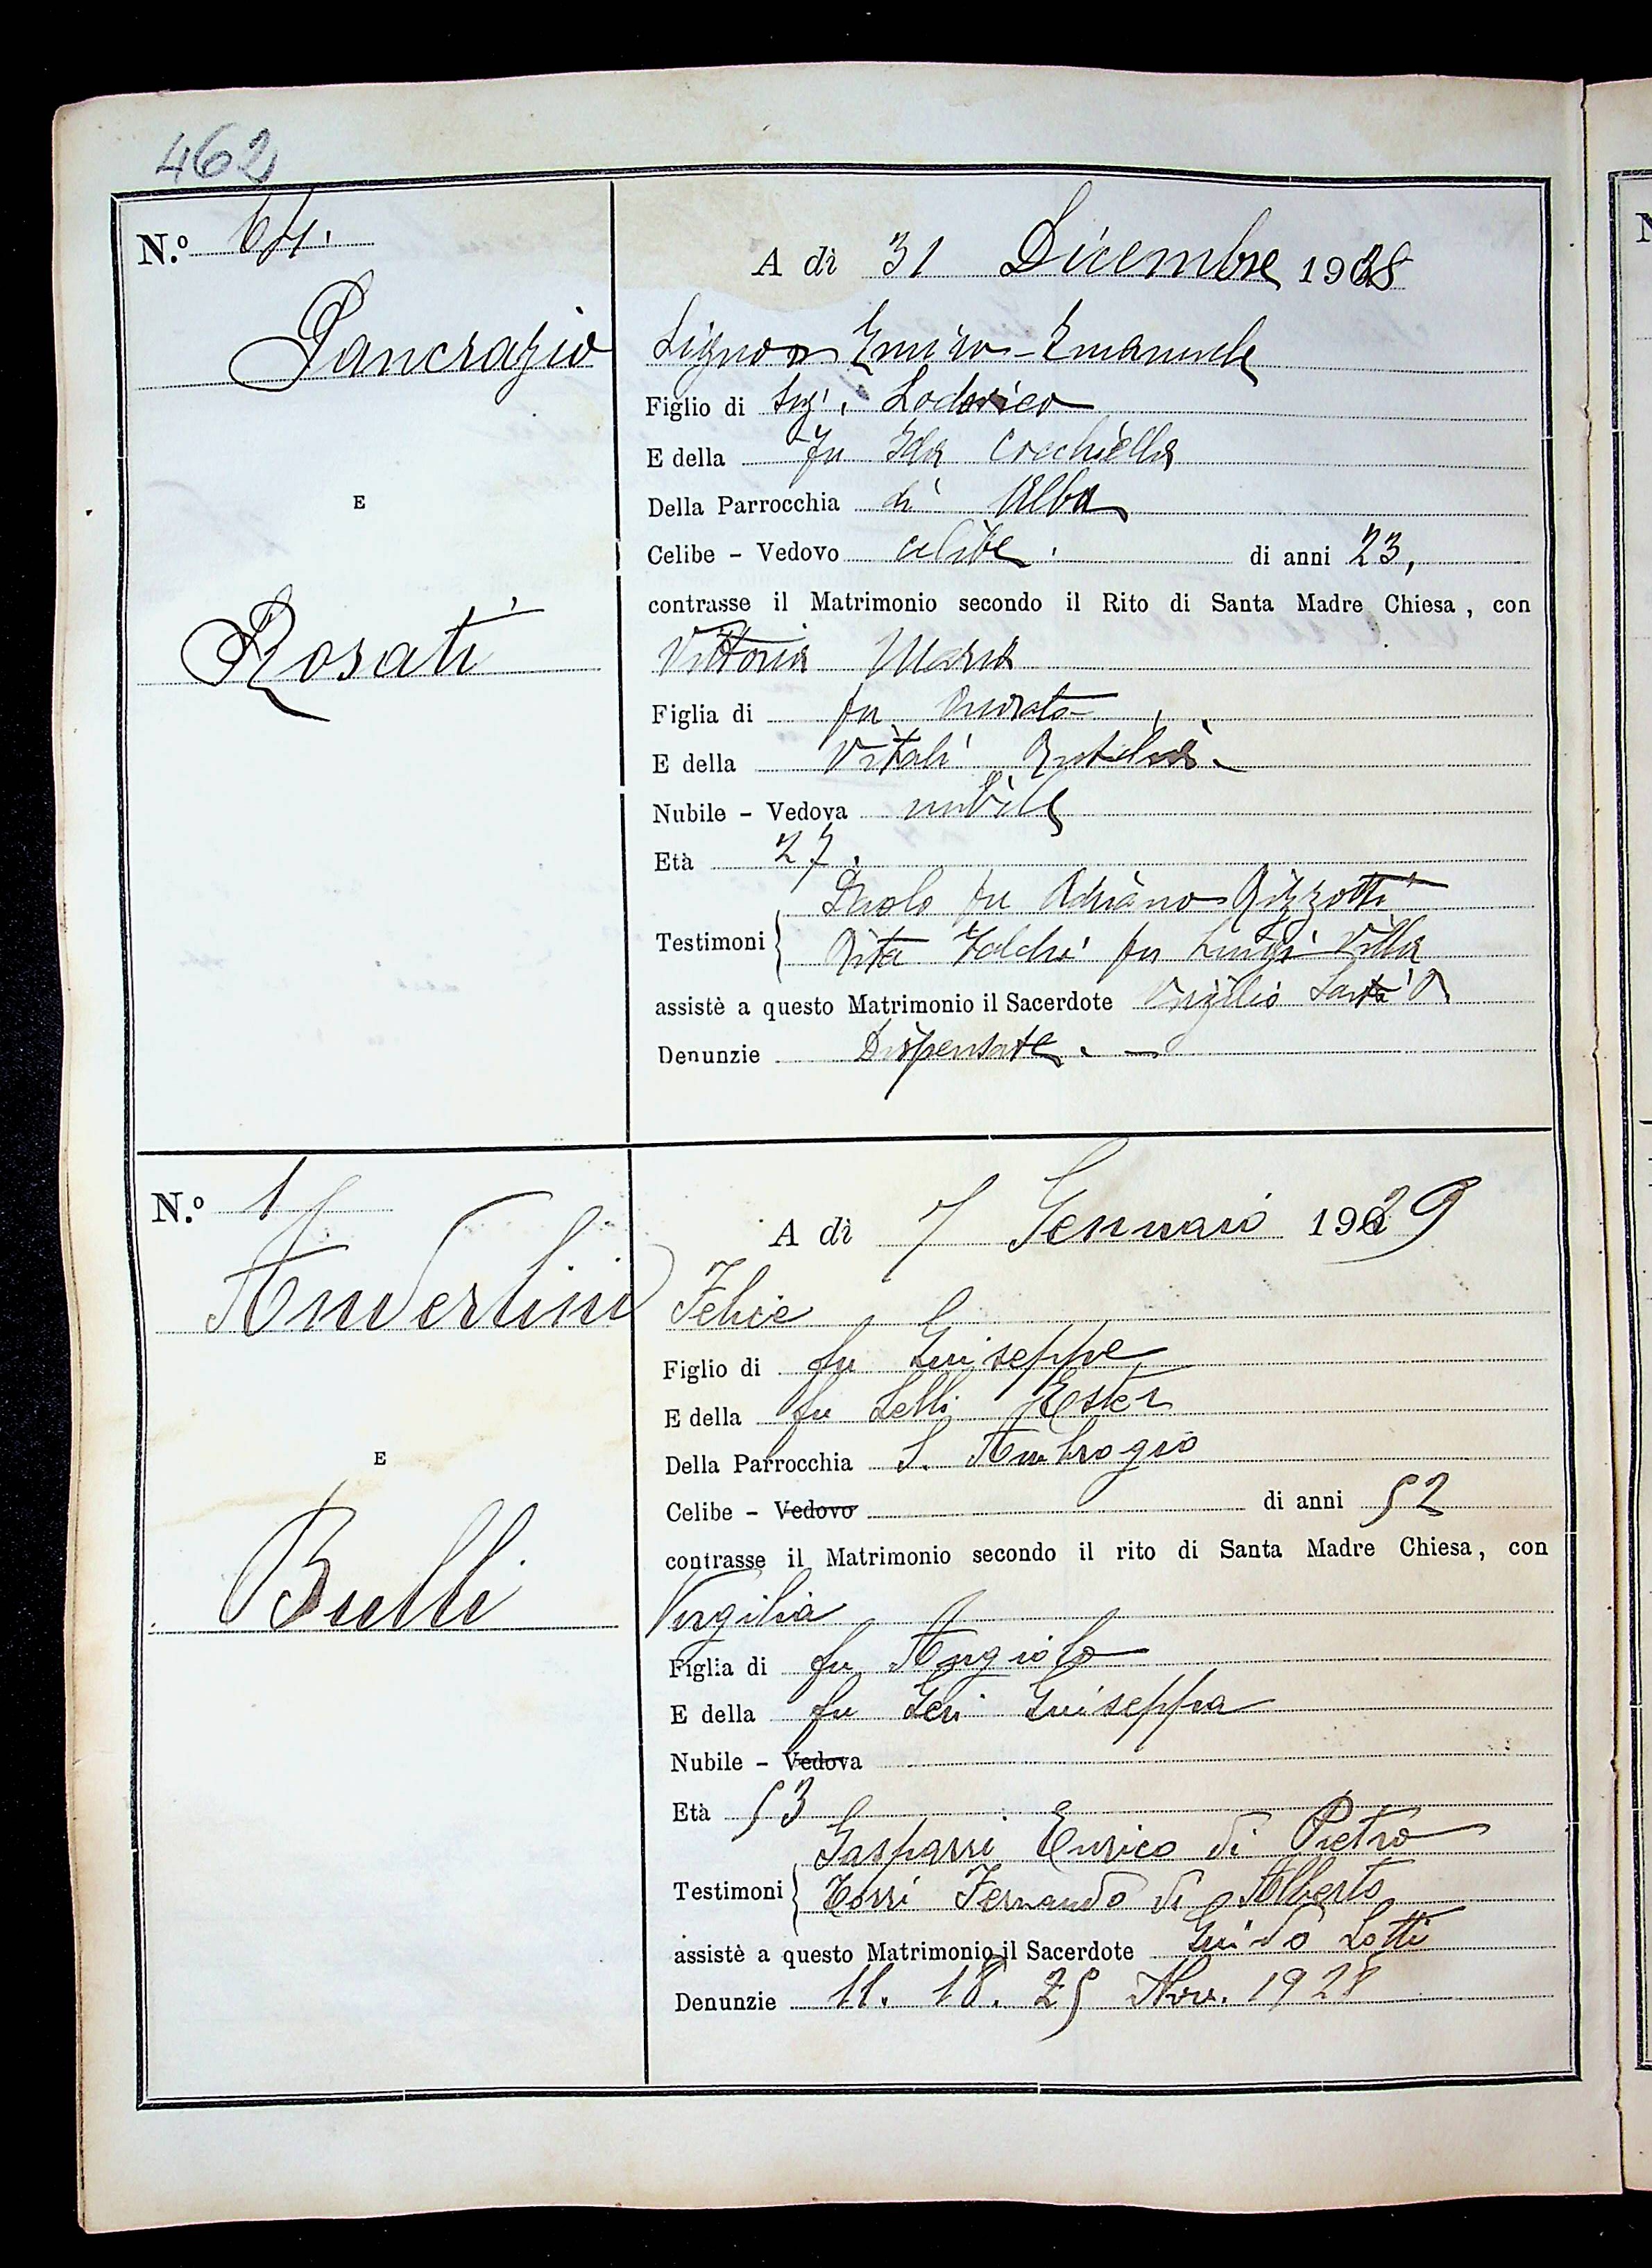 462
N.º 64.
A dì 31 Dicembre 1928
Pancrazio
Signor Enrico - Emanuele
Figlio di Sig. Lodovico
E della fu Ida
E
Della Parrocchia di Alba
Celibe - Vedovo celibe. di anni 23,
contrasse il Matrimonio secondo il Rito di Santa Madre Chiesa, con
Rosati
Vittoria Maria
Figlia di fu
E della Vitali
Nubile - Vedova nubile
Età 27.
Paolo fu Adriano
Testimoni Rita fu Luigi Villa
assistè a questo Matrimonio il Sacerdote Virgilio
Denunzie Dispensate. —
N.º 1
A dì 7 Gennaio 1929
Anderlini
Felice
Figlio di fu Giuseppe
E della fu Lelli Ester
E
Della Parrocchia S. Ambrogio
Celibe - Vedovo di anni 52
contrasse il Matrimonio secondo il rito di Santa Madre Chiesa, con
Bulli
Virgilia
Figlia di fu Angiolo
E della fu Geri Giuseppa
Nubile - Vedova
Età 53
Gasparri Enrico di Pietro
Testimoni Torri Fernando di Alberto
assistè a questo Matrimonio il Sacerdote Guido Lotti
Denunzie 11. 18. 25 Nov. 1928